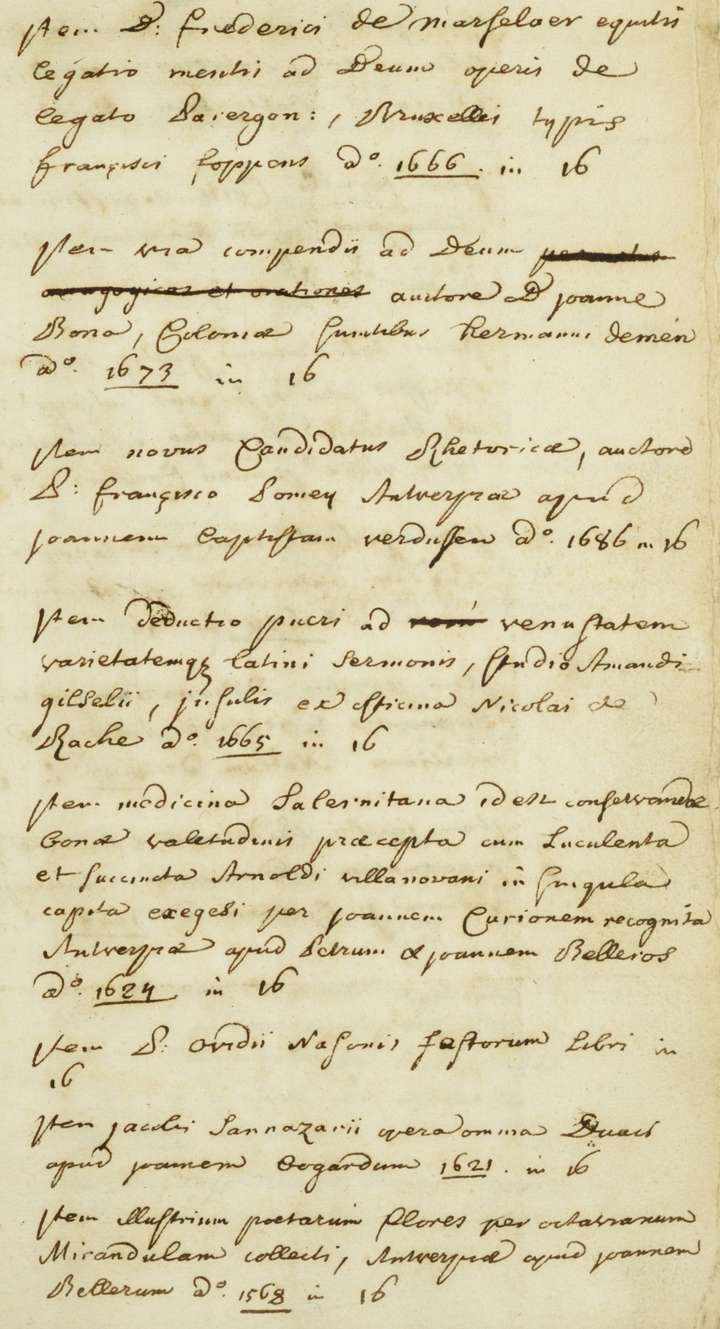 Item D: frederici de marselaer equitis
legatio mentis ad Deum operis de
legato Parergon:, Bruxellis typis
francisci foppens aº. 1666. in 16
Item via compendii ad Deum
anagogicas et orationes auctore D joanne
Bona, Coloniæ sumtibus hermanni demen
aº. 1673 in 16
Item novus Candidatus Rhetoricæ, auctore
P: francisco Pomey Antverpiæ apud
joannem baptistam verdussen aº. 1686 in 16
Item deductio pueri ad venustatem
varietatemq3 latini sermonis, studio Amandi
gilselii, jnsulis ex officina Nicolai de
Rache aº. 1665 in 16
Item medicina Salernitana id est conservandæ
bonæ valetudinis præcepta cum luculenta
et succincta Arnoldi villanovani in singula
capita exegesi per joannem Curionem recognita
Antverpiæ apud Petrum & joannem Belleros
aº. 1624 in 16
Item P: ovidii Nasonis fastorum libri in
16
Item jacobi Sannazarii opera omnia Duaci
apud joannem bogardum 1621. in 16
Item illustrium poetarum flores per octavianum
Mirandulam collecti, Antverpiæ apud joannem
Bellerum aº. 1568 in 16